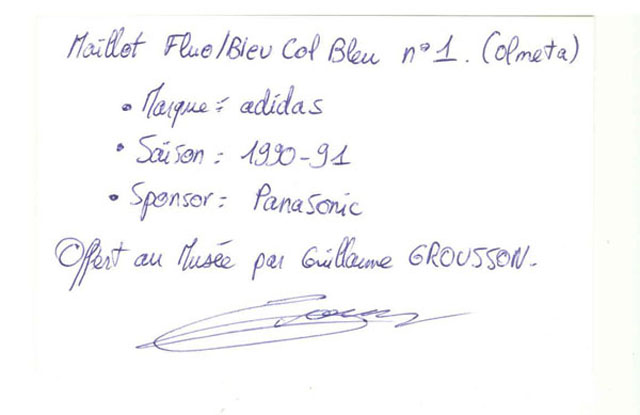 Maillot Fluo/Bleu Col Bleu n°1. (Olmeta)
• Marque = adidas
• Saison = 1990-91
• Sponsor = Panasonic
Offert au Musée par Guillaume GROUSSON-